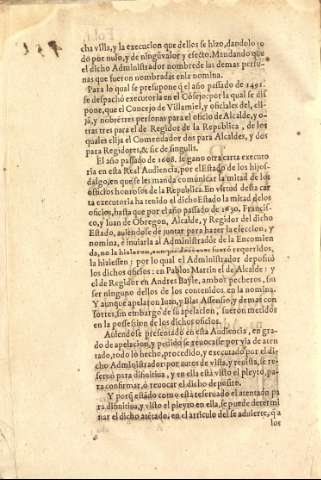 cha villa, y la execucion que dellos se hizo, dandolo to
do por nulo, y de ningũ valor y efecto. Mandando que
el dicho Administrador nombre de las demas perso-
nas que fueron nombradas en la nomina.
Para lo qual se presupone q̃ el año pasado de 1491.
se despachò executoria en el Cõsejo: por la qual se dis-
pone, que el Concejo de Villamiel, y oficiales del, eli-
jã, y nõbrẽ tres personas para el oficio de Alcalde, y o-
tras tres para el de Regidor de la Republica, de los
quales elija el Comendador dos para Alcaldes, y dos
para Regidores, & sic de singulis.
El año pasado de 1608. se ganò otra carta executo
ria en esta Real Audiencia, por el Estado de los hijos-
dalgo, en que se les manda comunicar la mitad de los
oficios honrosos de la Republica. En virtud desta car
ta executoria ha tenido el dicho Estado la mitad de los
oficios, hasta que por el año pasado de 1630. Francis-
co, y Iuan de Obregon, Alcalde, y Regidor del dicho
Estado, auiendose de juntar para hazer la eleccion, y
nomina, è inuiarla al Administrador de la Encomien
da, no la hizieron, aunque fueron requeridos,
la hiziessen; por lo qual el Administrador depositò
los dichos oficios: en Pablo Martin el de Alcalde: y
el de Regidor en Andres Bayle, ambos pecheros, sin
ser ninguno dellos de los contenidos en la nomina.
Y aunque apelarõ Iuan, y Blas Assensio, y demas con
sortes, sin embargo de su apelacion, fueron metidos
en la possession de los dichos oficios.
Auiendose presentado en esta Audiencia, en gra-
do de apelacion, y pedido se reuocasse por via de aten
tado, todo lo hecho, procedido, y executado por el di-
cho Administrador: por autos de vista, y reuista, se re-
seruò para difinitiua, y en ella està visto el pleyto, pa-
ra confirmar, ò reuocar el dicho deposito.
Y porq̃ estãdo como està reseruado el atentado pa
ra difinitiua, y visto el pleyto en ella, se puede determi
nar el dicho atẽtado, en el articulo del se aduierte, q̃ a
los